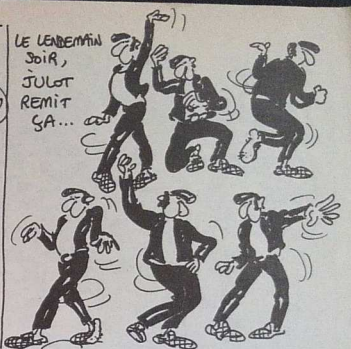 LE LENDEMAIN
SOIR,
JULOT
REMIT
ÇA...